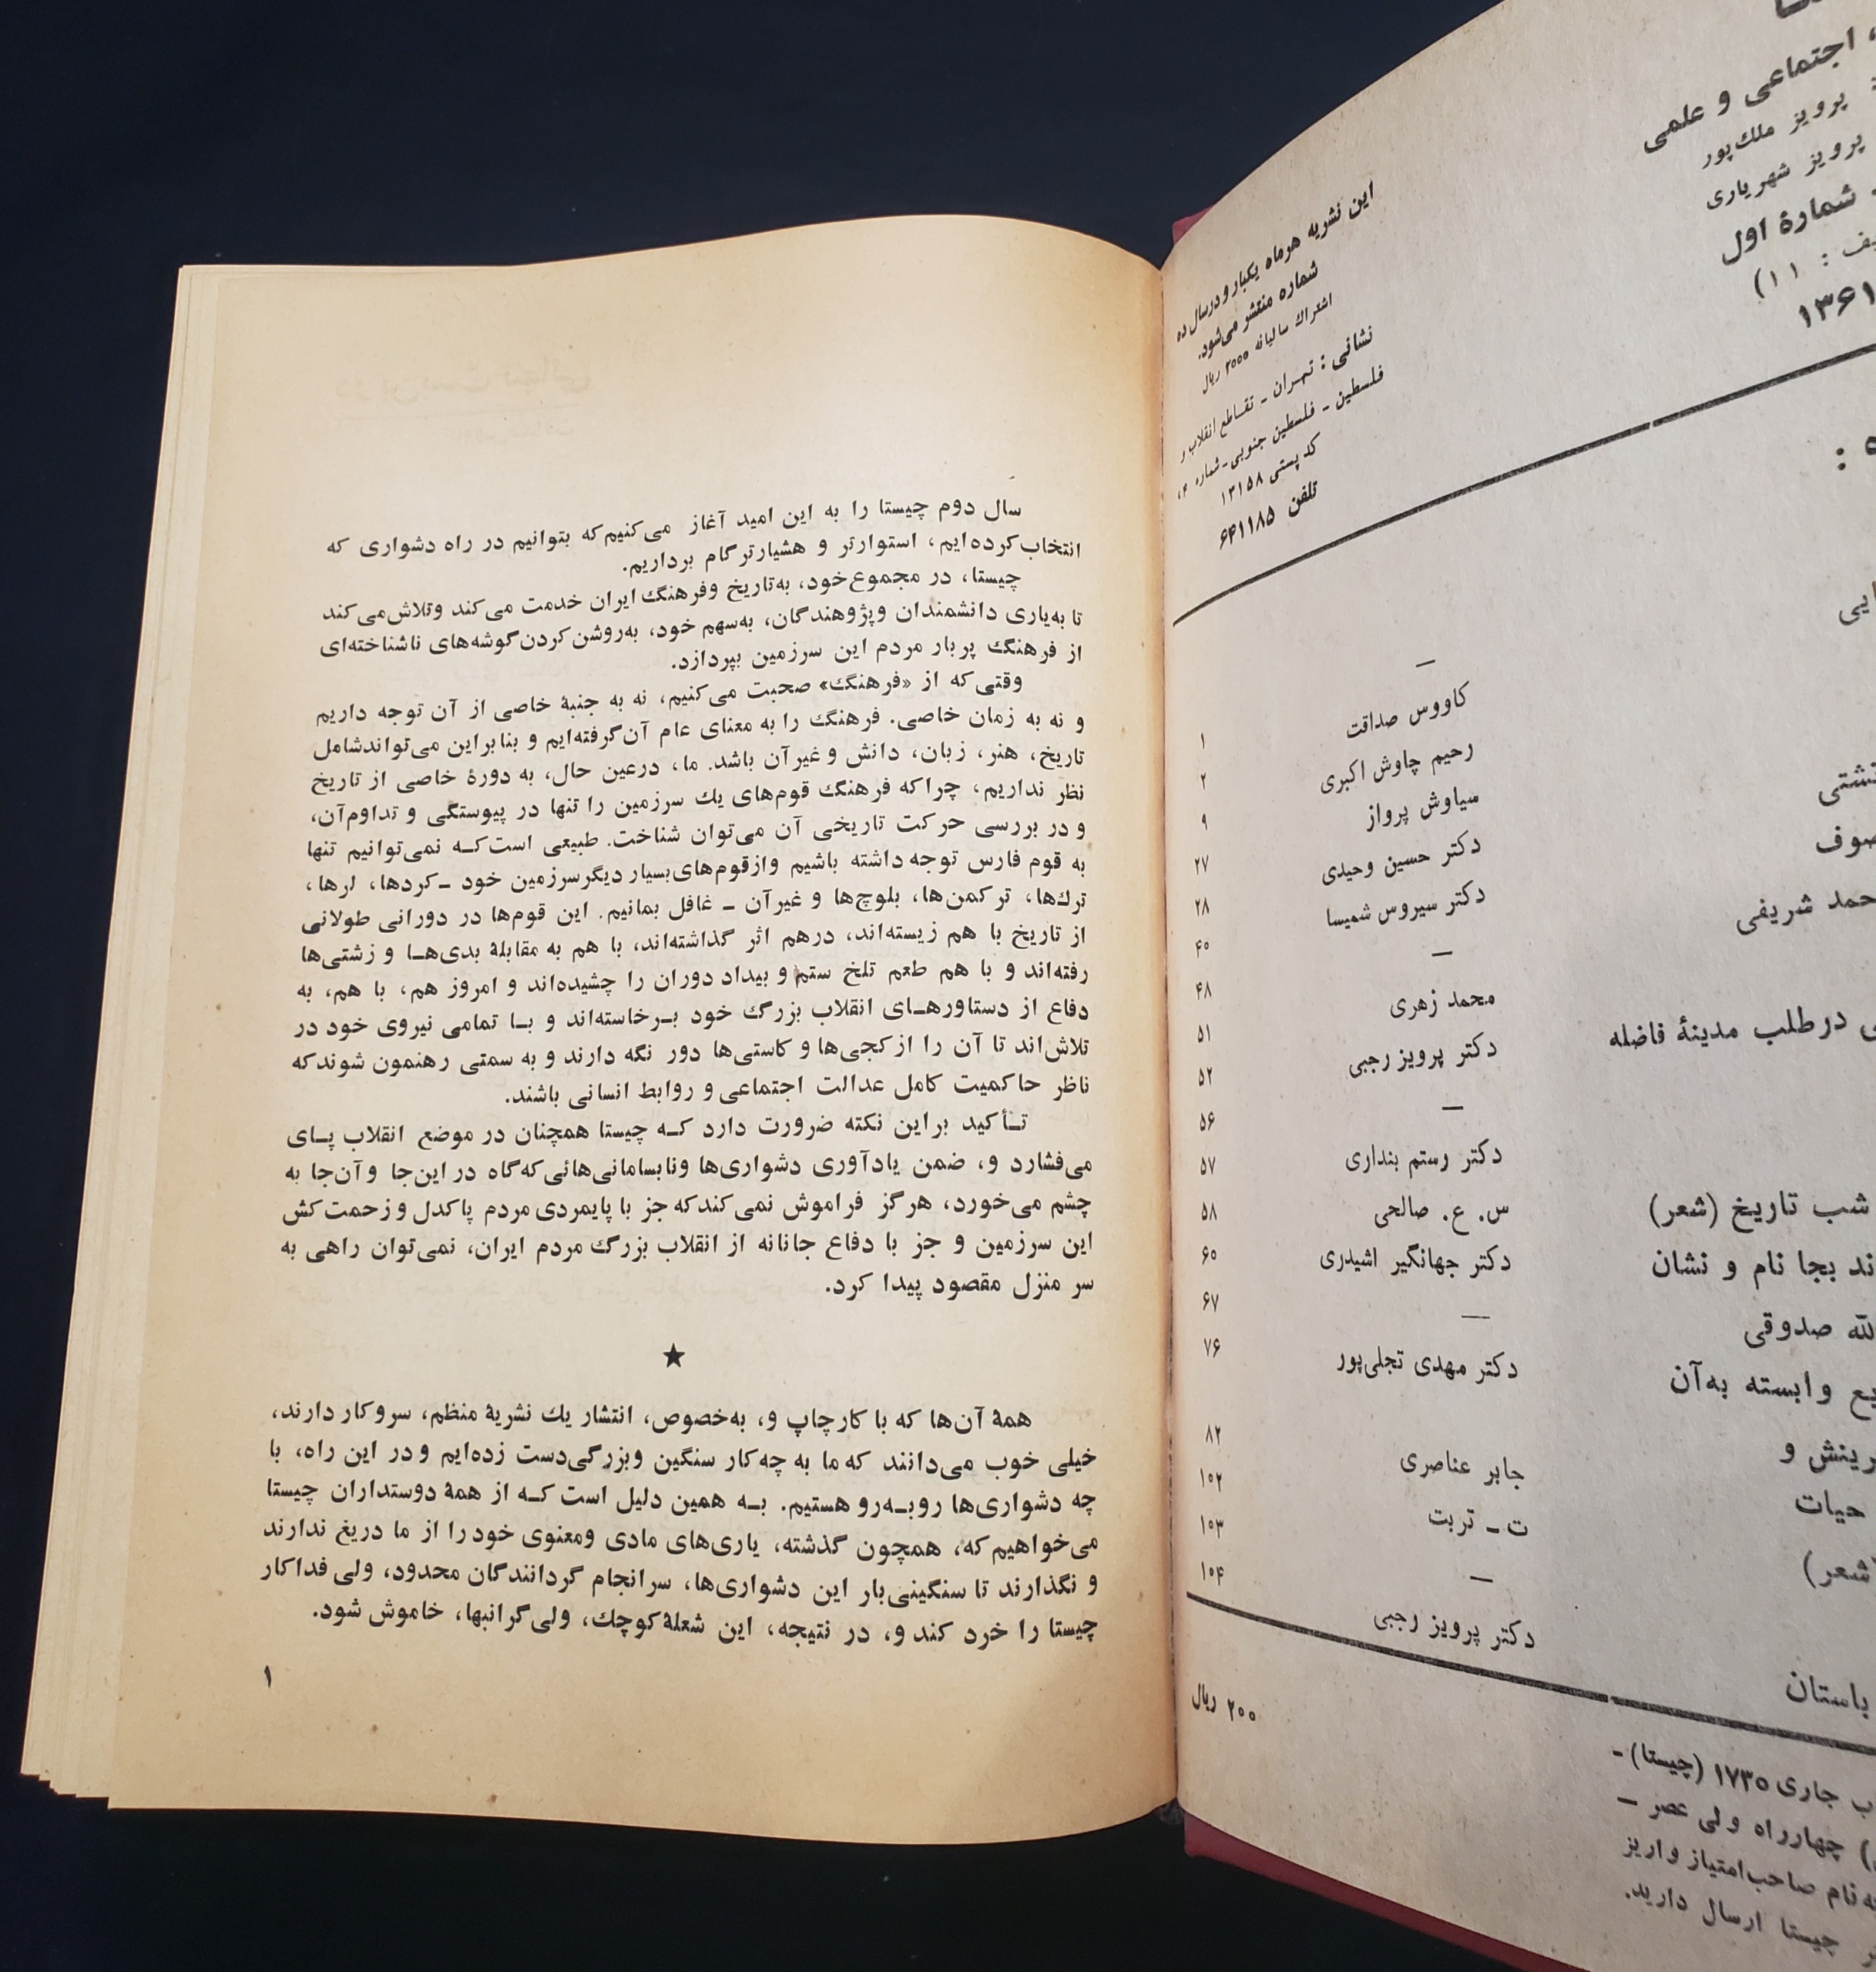 ، اجتماعی و علمی
پرویز ملك‌پور
پرویز شهریاری
شمارهٔ اول
: ۱۱)
۱۳۶۱
این نشریه هرماه یکبار و درسال ده
شماره منتشر می‌شود.
اشتراك سالیانه ۲۰۰۰ ریال
نشانی : تهران ـ تقاطع انقلاب و
فلسطین ـ فلسطین جنوبی ـ شماره ۲،
کد پستی ۱۳۱۵۸
تلفن ۶۴۱۱۸۵
—
کاووس صداقت ۱
رحیم چاوش اکبری ۲
سیاوش پرواز ۹
دکتر حسین وحیدی ۲۷
دکتر سیروس شمیسا ۲۸
حمد شریفی — ۴۰
محمد زهری ۴۸
درطلب مدینهٔ فاضله دکتر پرویز رجبی ۵۱
— ۵۲
دکتر رستم بنداری ۵۶
شب تاریخ (شعر) س. ع. صالحی ۵۷
بجا نام و نشان دکتر جهانگیر اشیدری ۵۸
صدوقی — ۶۰
وابسته به‌آن دکتر مهدی تجلی‌پور ۶۷
و ۷۶
حیات جابر عناصری ۸۲
(شعر) ت ـ تربت ۱۰۲
— ۱۰۳
باستان دکتر پرویز رجبی ۱۰۴
۲۰۰ ریال
جاری ۱۷۳۵ (چیستا) ـ
چهارراه ولی عصر ـ
صاحب‌امتیاز واریز
چیستا ارسال دارید.
سال دوم چیستا را به این امید آغاز می‌کنیم که بتوانیم در راه دشواری که
انتخاب کرده‌ایم، استوارتر و هشیارتر گام برداریم.
چیستا، در مجموع خود، به‌تاریخ وفرهنگ ایران خدمت می‌کند وتلاش می‌کند
تا به‌یاری دانشمندان وپژوهندگان، به‌سهم خود، به‌روشن کردن گوشه‌های ناشناخته‌ای
از فرهنگ پربار مردم این سرزمین بپردازد.
وقتی که از «فرهنگ» صحبت می‌کنیم، نه به جنبهٔ خاصی از آن توجه داریم
و نه به زمان خاصی. فرهنگ را به معنای عام آن گرفته‌ایم و بنابراین می‌تواند شامل
تاریخ، هنر، زبان، دانش و غیر آن باشد. ما، درعین حال، به دورهٔ خاصی از تاریخ
نظر نداریم، چراکه فرهنگ قوم‌های یك سرزمین را تنها در پیوستگی و تداوم آن،
و در بررسی حرکت تاریخی آن می‌توان شناخت. طبیعی است کـه نمی‌توانیم تنها
به قوم فارس توجه داشته باشیم و از قوم‌های بسیار دیگر سرزمین خود ـ کردها، لرها،
ترك‌ها، ترکمن‌ها، بلوچ‌ها و غیر آن ـ غافل بمانیم. این قوم‌ها در دورانی طولانی
از تاریخ با هم زیسته‌اند، درهم اثر گذاشته‌اند، با هم به مقابلهٔ بدی‌هـا و زشتی‌ها
رفته‌اند و با هم طعم تلخ ستم و بیداد دوران را چشیده‌اند و امروز هم، با هم، به
دفاع از دستاورهـای انقلاب بزرگ خود بـرخاسته‌اند و بـا تمامی نیروی خود در
تلاش‌اند تا آن را از کجی‌ها و کاستی‌ها دور نگه دارند و به سمتی رهنمون شوند که
ناظر حاکمیت کامل عدالت اجتماعی و روابط انسانی باشند.
تـأکید براین نکته ضرورت دارد کـه چیستا همچنان در موضع انقلاب پـای
می‌فشارد و، ضمن یادآوری دشواری‌ها ونابسامانی‌هائی که گاه در این‌جا و آن‌جا به
چشم می‌خورد، هرگز فراموش نمی‌کند که جز با پایمردی مردم پاکدل و زحمت‌کش
این سرزمین و جز با دفاع جانانه از انقلاب بزرگ مردم ایران، نمی‌توان راهی به
سر منزل مقصود پیدا کرد.
★
همهٔ آن‌ها که با کار چاپ و، به‌خصوص، انتشار یك نشریهٔ منظم، سروکار دارند،
خیلی خوب می‌دانند که ما به چه کار سنگین وبزرگی دست زده‌ایم و در این راه، با
چه دشواری‌ها روبـه‌رو هستیم. بـه همین دلیل است کـه از همهٔ دوستداران چیستا
می‌خواهیم که، همچون گذشته، یاری‌های مادی ومعنوی خود را از ما دریغ ندارند
و نگذارند تا سنگینی بار این دشواری‌ها، سرانجام گردانندگان محدود، ولی فداکار
چیستا را خرد کند و، در نتیجه، این شعلهٔ کوچك، ولی گرانبها، خاموش شود.
۱